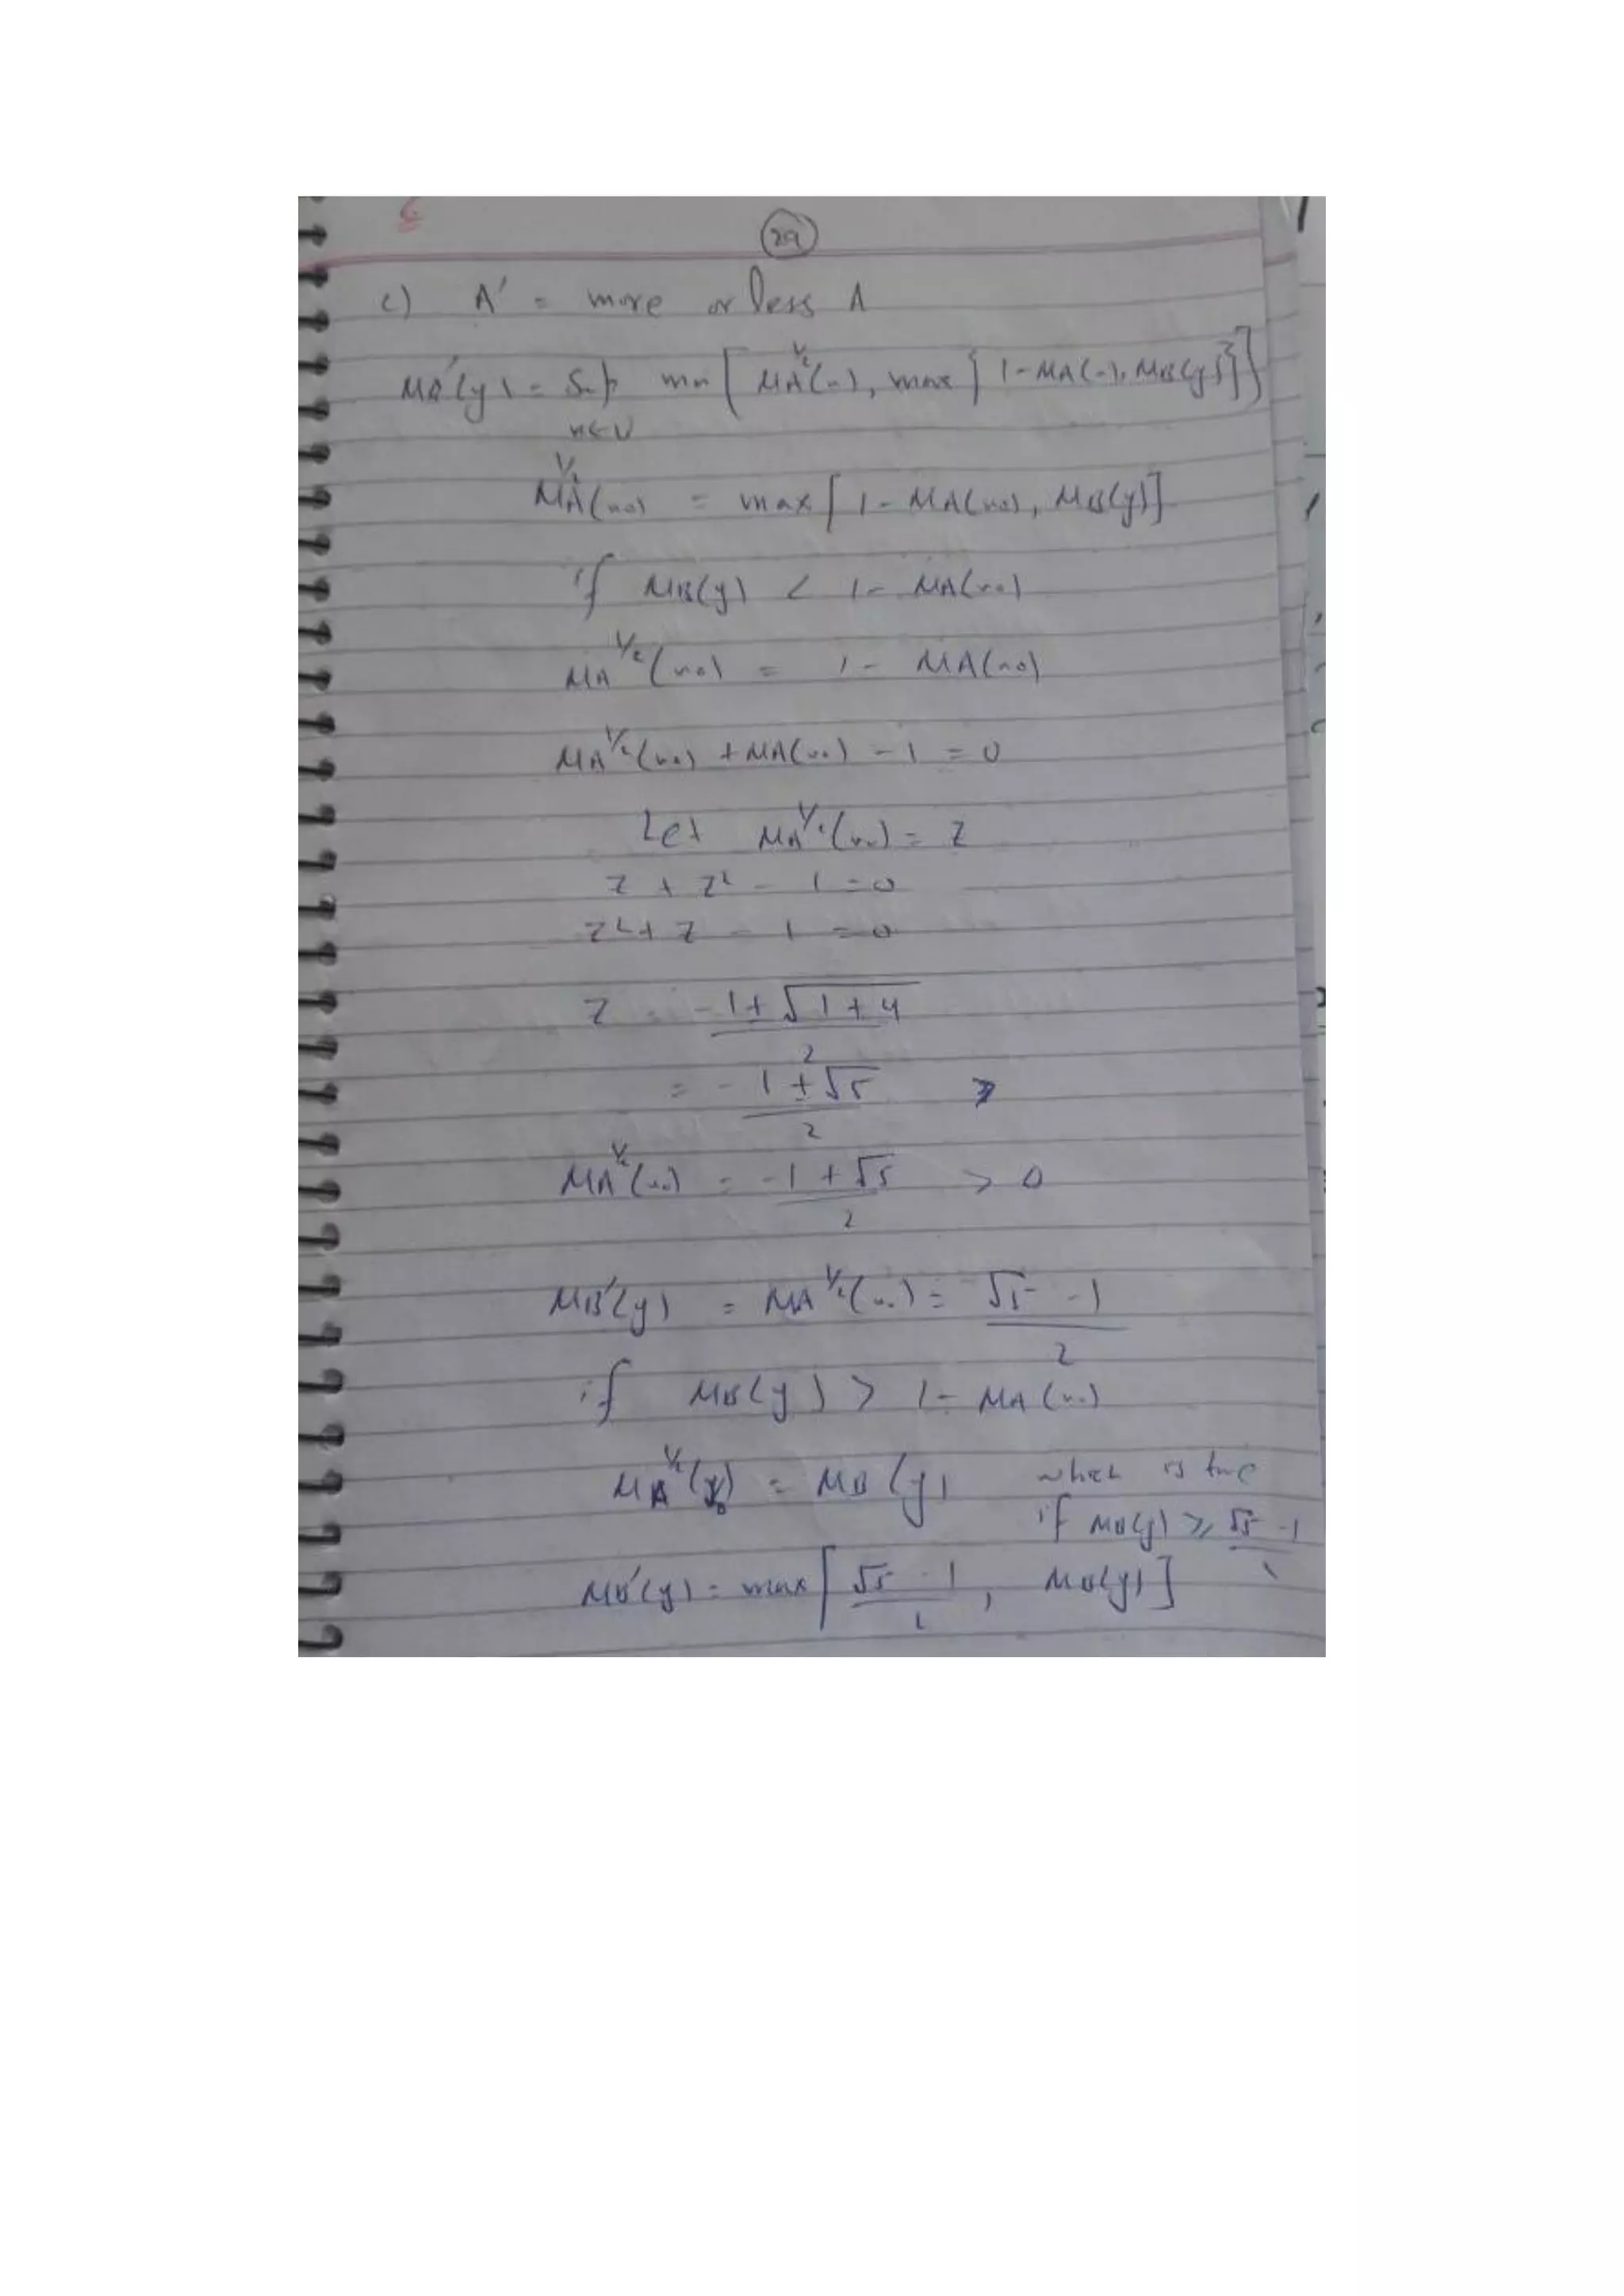 29
c) A' = more or less A
MB'(y) = Sup min [ MA^1/2(x), max { 1-MA(x), MB(y) } ]
x∈U
MA^1/2(x0) = max [ 1 - MA(x0), MB(y) ]
if MB(y) < 1 - MA(x0)
MA^1/2(x0) = 1 - MA(x0)
MA^1/2(x0) + MA(x0) - 1 = 0
Let MA^1/2(x0) = Z
Z + Z² - 1 = 0
Z² + Z - 1 = 0
Z = -1 + √1+4 / 2
= -1 + √5 / 2
MA^1/2(x0) = -1 + √5 / 2 > 0
MB'(y) = MA^1/2(x0) = √5 - 1 / 2
if MB(y) > 1 - MA(x0)
MA^1/2(x0) = MB(y) which is true
if MB(y) ≥ √5 - 1
MB'(y) = max [ √5 - 1 / 2 , MB(y) ]